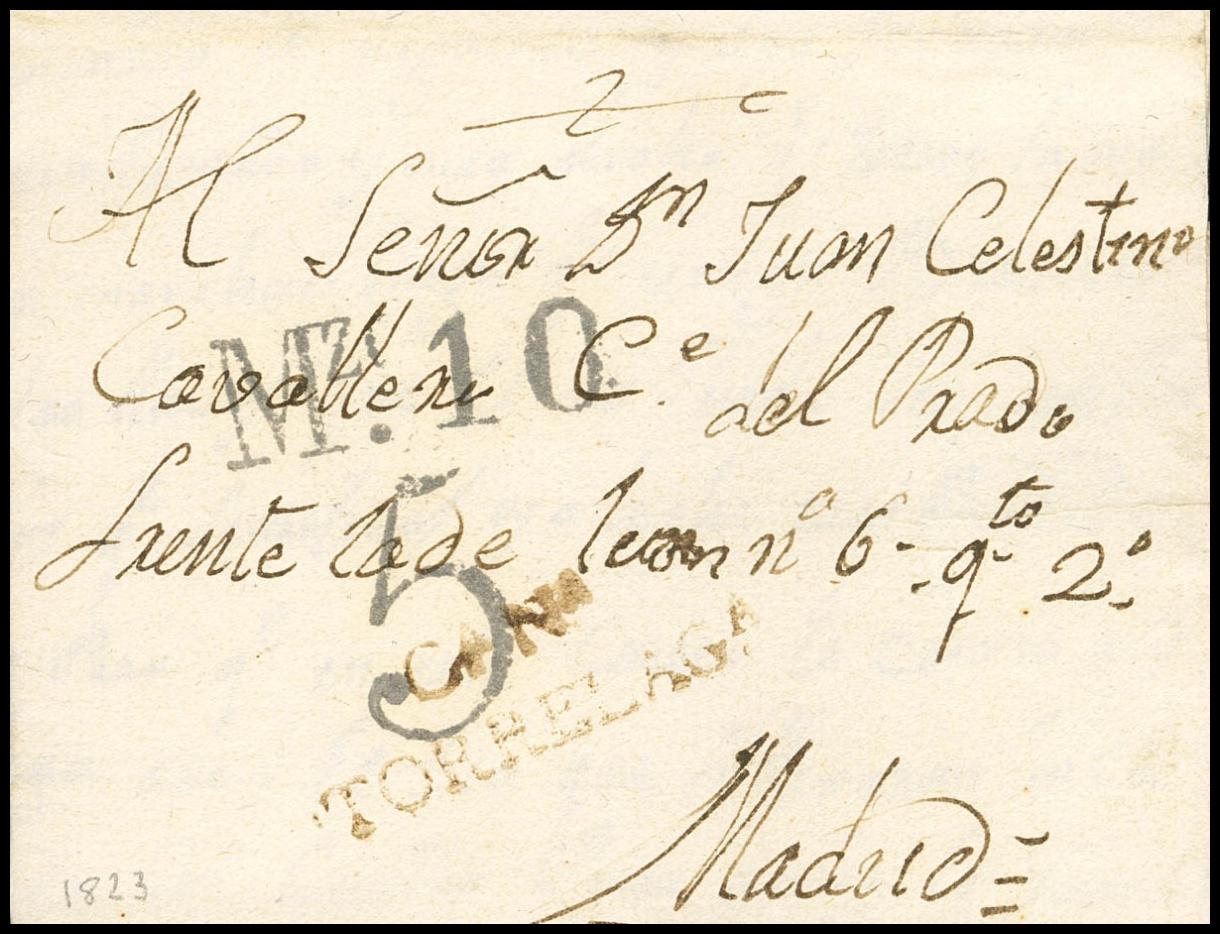 Al Señor Dn Juan Celestino
Cavallero C.e del Prado
frente la de leon nº 6- qto 2º
Mr: 10
5
CAN
TORRELAGA
Madrid=
1823